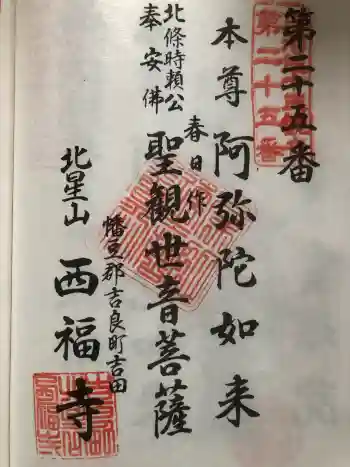 第二十五番
第二十五番
本尊阿弥陀如来
春日作
聖観世音菩薩
北條時頼公
奉安佛
幡豆郡吉良町吉田
北星山西福寺